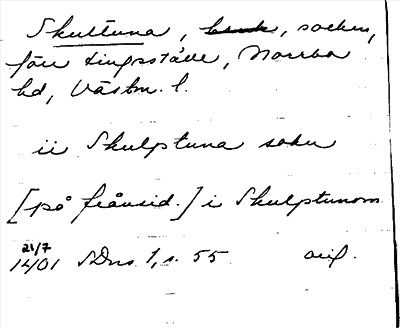 Skultuna, socken,
förr tingsställe, Norrbo
hd, Västm. l.
ii Skulptuna sokn
[på frånsid.] i Skulptunom
21/7
1401 SDns 1, s. 55 orig.